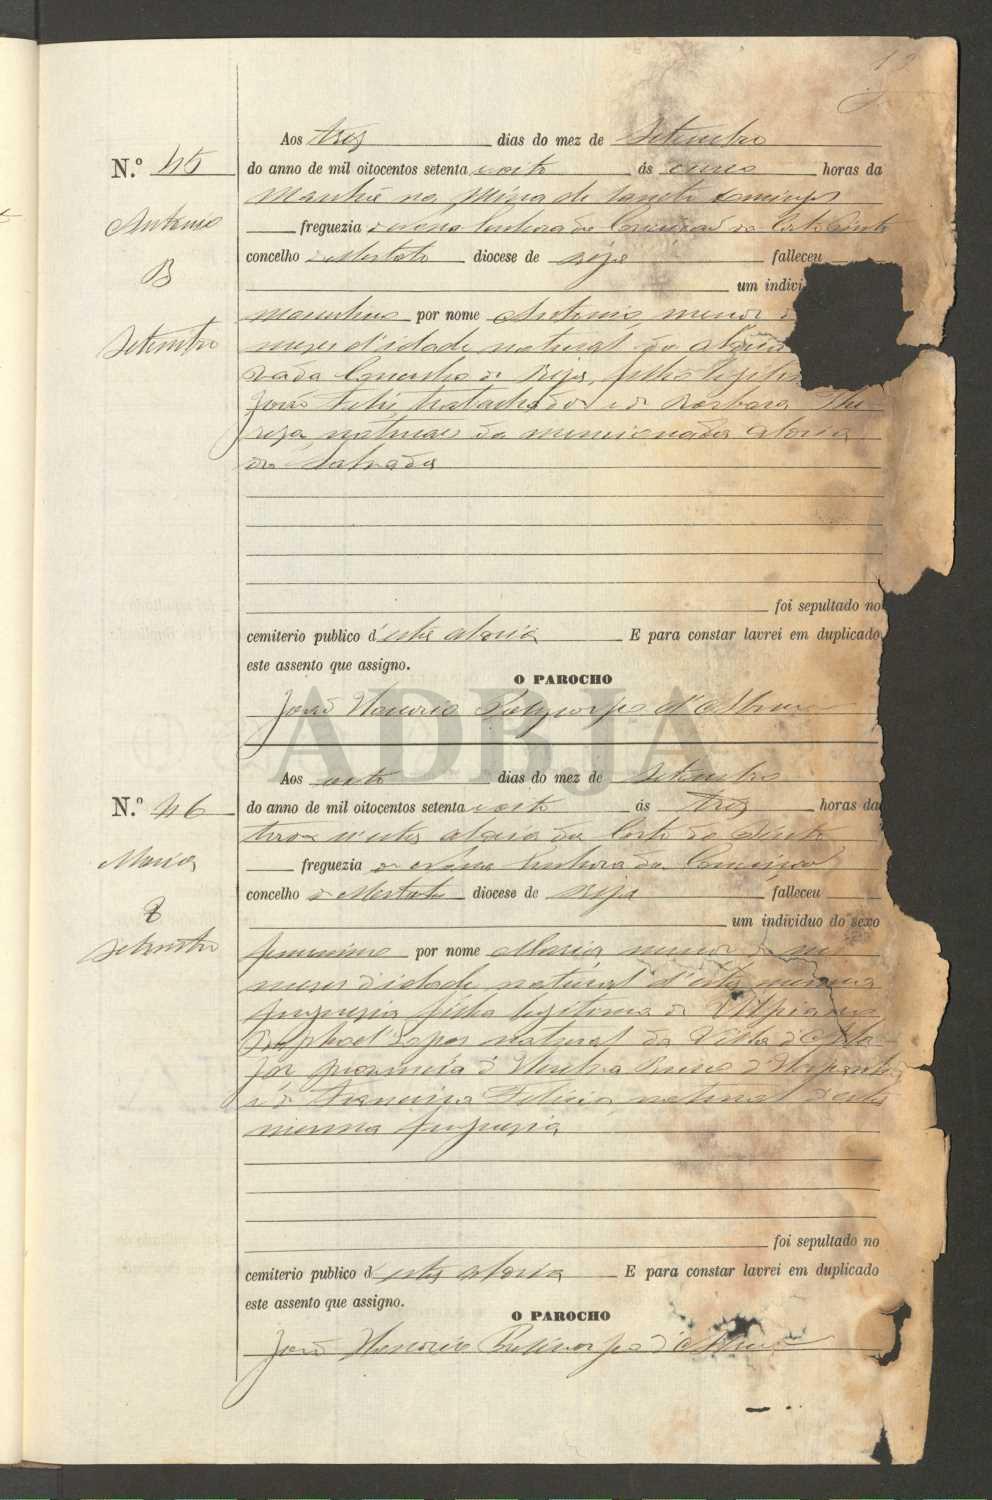 19
Aos tres dias do mez de Setembro
N.º 45 do anno de mil oitocentos setenta e oito ás cinco horas da
Manhã na Mina de
Antonio freguezia de Nossa Senhora da Conceição da Corte do Pinto
concelho de Mertola diocese de Beja falleceu
B um indivi
masculino por nome Antonio, menor
Setembro mezes d'idade natural da
vada Concelho de Beja, filho legitimo
João Felis, trabalhador e de Barbara The
reza, naturaes da mencionada aldeia
da Salvada
foi sepultado no
cemiterio publico d'esta aldeia E para constar lavrei em duplicado
este assento que assigno.
O PAROCHO
João Honorio d'
ADBJA
Aos oito dias do mez de Setembro
N.º 46 do anno de mil oitocentos setenta e oito ás tres horas da
aldeia da Corte do Pinto
Maria freguezia de Nossa Senhora da Conceição
concelho de Mertola diocese de Beja falleceu
8 um individuo do sexo
Setembro femenino por nome Maria menor de
mezes d'idade natural d'esta mesma
freguezia filha legitima de
Raphael Lopes natural da Villa d'
provincia d'Huelva Reino d'Hespanha
e de Francisca Felicia, natural d'esta
mesma freguezia
foi sepultado no
cemiterio publico d'esta aldeia E para constar lavrei em duplicado
este assento que assigno.
O PAROCHO
João Honorio d'